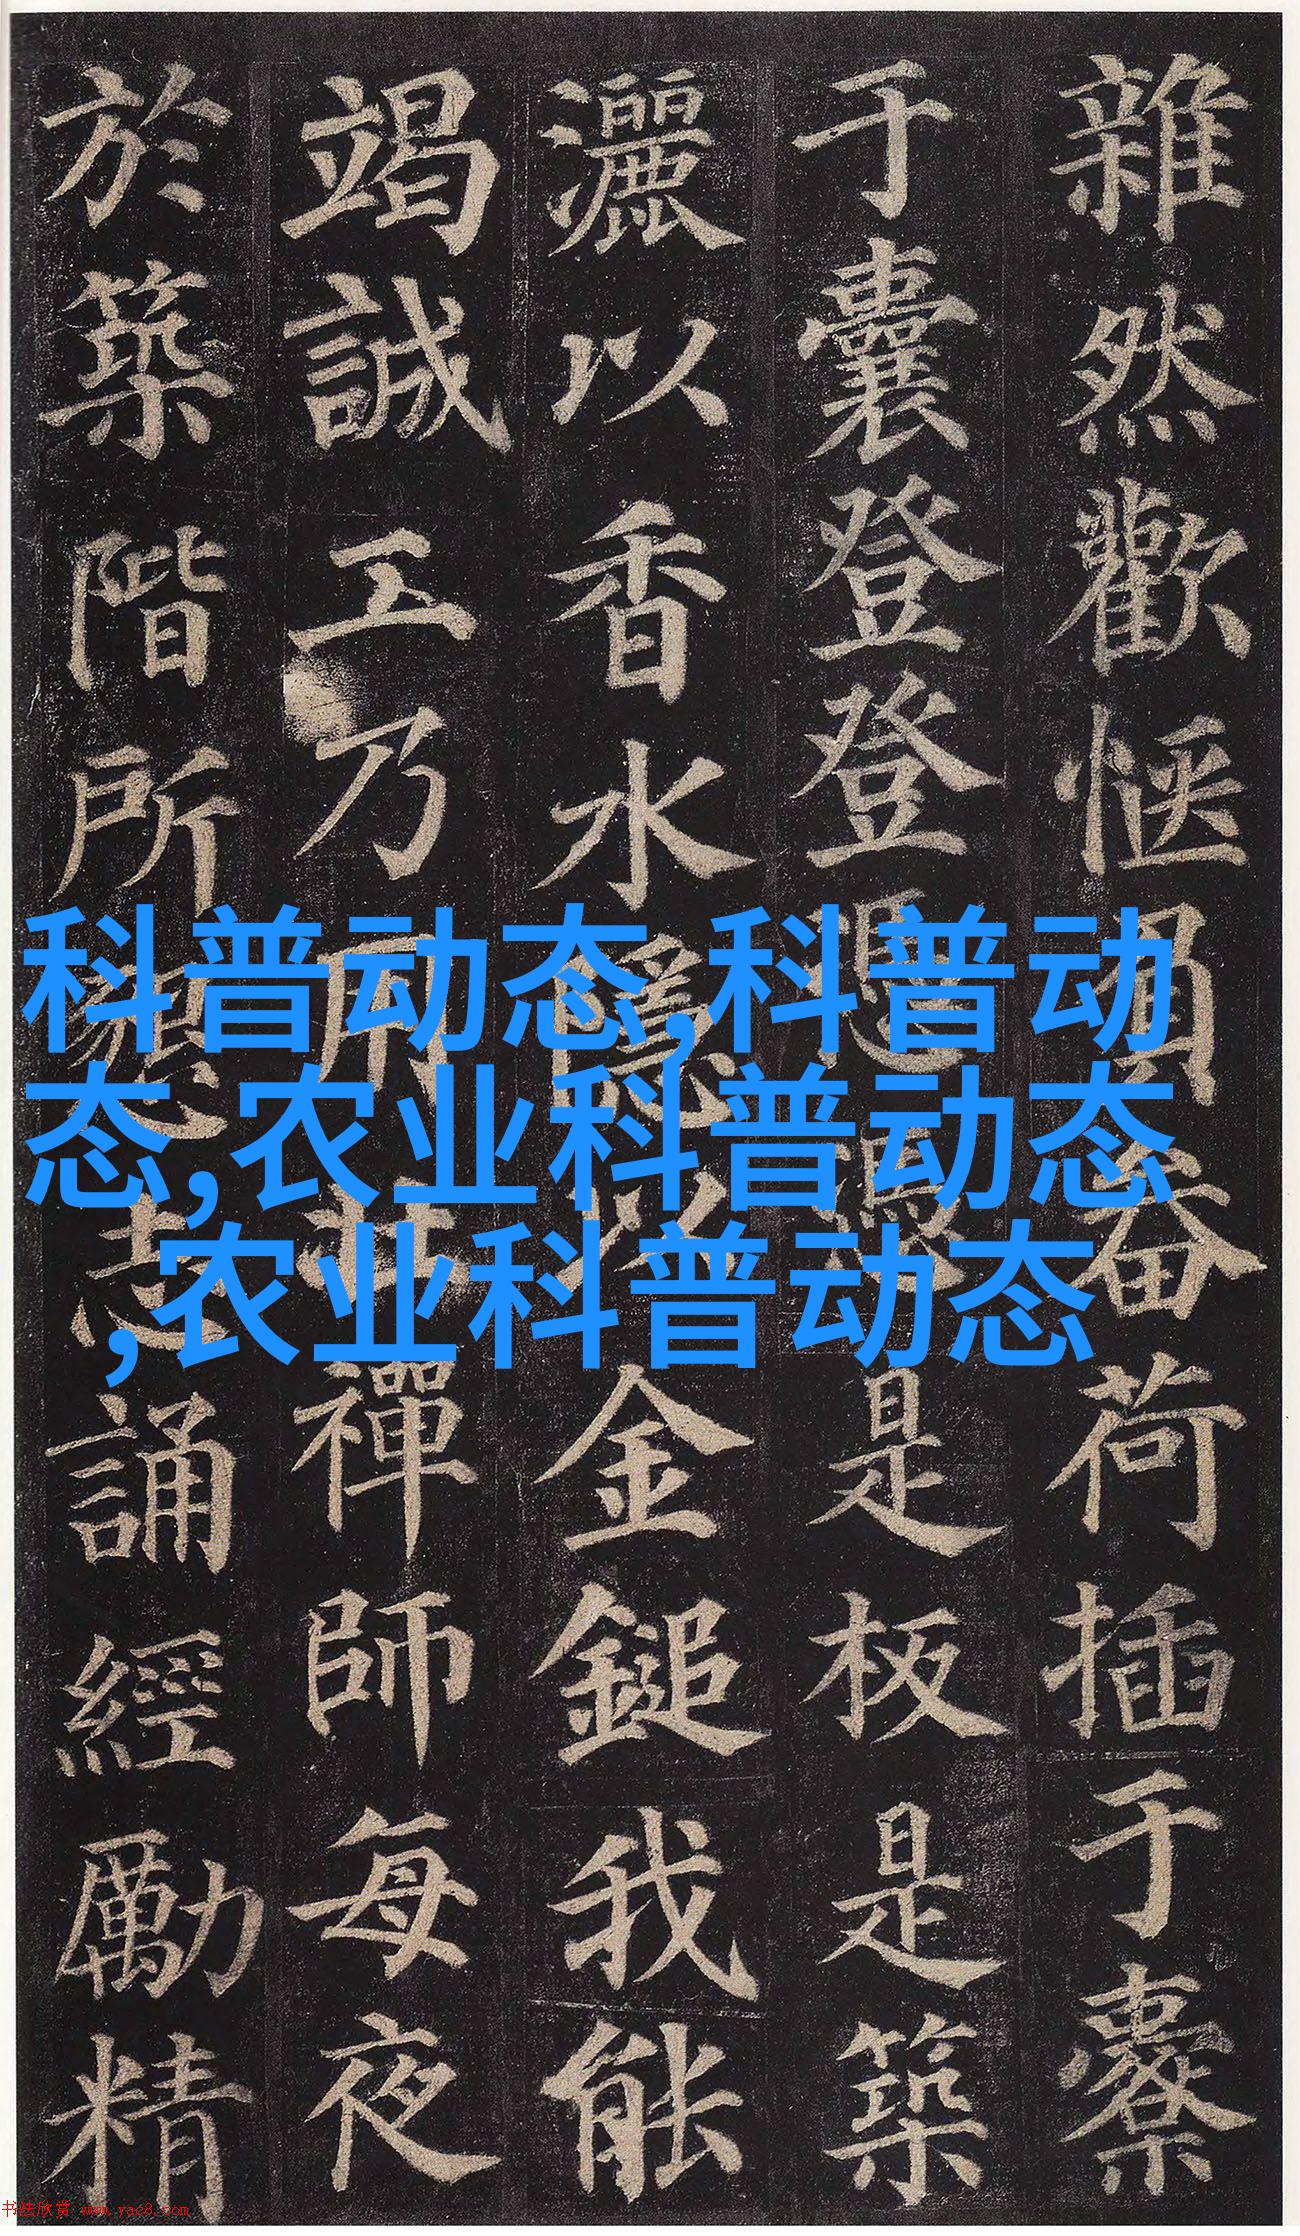 雜然歡愜負畚荷插于橐
于囊登登是板是築
灑以香水隱以金鎚我能
竭誠工乃用壯禪師每夜
於築階所懇志誦經勵精
科普动态,科普动
态,农业科普动态
,农业科普动态
书法欣赏 www.yac8.com